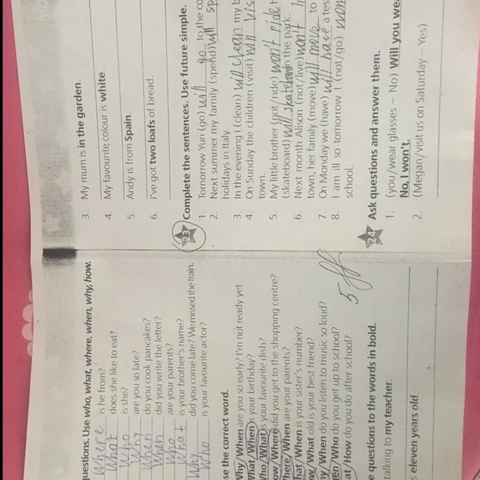 questions. Use who, what, where, when, why, how.
Where is he from?
What does she like to eat?
Who is she?
Why are you so late?
When do you cook pancakes?
When did you write the letter?
Who are your parents?
What is your brother's name?
Why did you come late? We missed the train.
Who is your favourite actor?
the correct word.
Why/When are you so early? I'm not ready yet.
What/When is your birthday?
Who/What is your favourite dish?
How/Where did you get to the shopping centre?
Where/When are your parents?
What/When is your sister's number?
What old is your best friend?
When do you listen to music so loud?
Who do you get up to school?
How do you do after school?
5
questions to the words in bold.
talking to my teacher.
is eleven years old
3. My mum is in the garden.
4. My favourite colour is white.
5. Andy is from Spain.
6. I've got two loafs of bread.
23 Complete the sentences. Use future simple.
1. Tomorrow Yuri (go) will go to the
2. Next summer my family (spend) will
holidays in Italy.
3. In the evening I (clean) will clean my
4. On Sunday the children (visit) will
town.
5. My little brother (not/ride) won't ride
(skateboard) will skateboard in the park.
6. Next month Alison (not/live) won't
town, her family (move) will move to
7. On Monday we (have) will have a
8. I am ill so tomorrow I (not/go) won't
school.
24 Ask questions and answer them.
1. (you/wear glasses – No) Will you
No, I won't.
2. (Megan/visit us on Saturday – Yes)